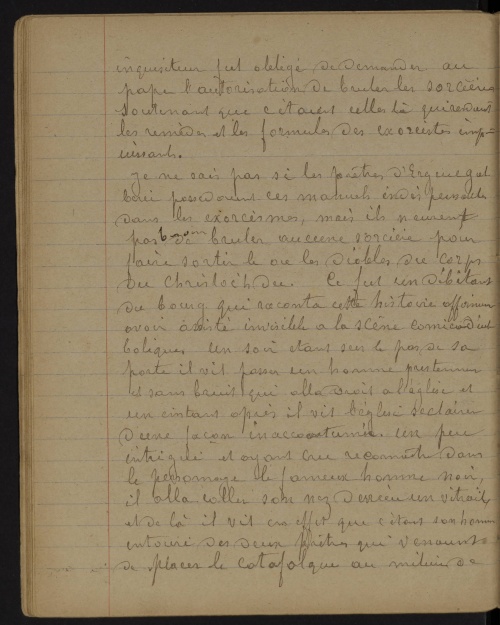 inquisiteur fut obligé de demander au
pape l'autorisation de bruler les sorcières
soutenant que c'étaient celles là qui rendaient
les remèdes et les formules des exorcistes imp-
uissants.
Je ne sais pas si les prêtres d'Ergue gat
baie possedaient ces manuels indispensables
dans les exorcismes, mais ils n'eurent
pas besoin de bruler aucune sorcière pour
faire sortir le ou les diables du corps
du Christoc'h du. Ce fut un débitant
du bourg qui raconta cette histoire affirmant
avoir assité invisible a la scène comico diab
boliques. Un soir etant sur le pas de sa
porte il vit passer un homme
et sans bruit qui alla droit a l'église et
un instant après il vit l'église s'eclairer
d'une façon inaccoutumée. un peu
intrigué et ayant cru reconnaitre dans
le personnage le fameux homme noir,
il alla coller son nez devant un vitrail,
et de là il vit en effet que c'était son homme
entouré des deux prêtres qui venaient
de placer le catafalque au milieu de